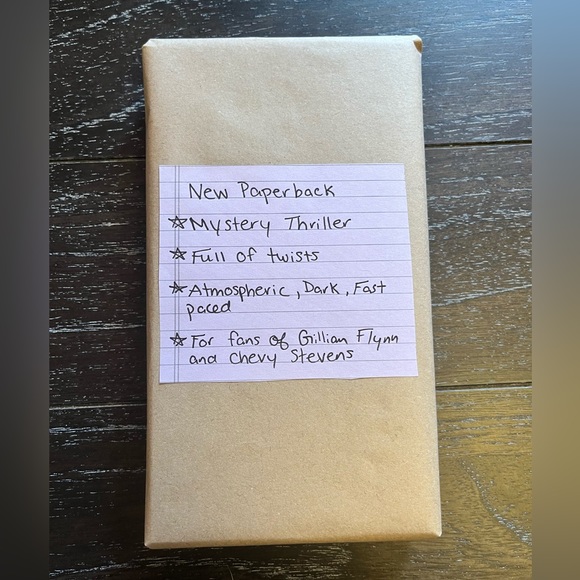 New Paperback
☆Mystery Thriller
☆Full of twists
☆Atmospheric, Dark, Fast
paced
☆For fans of Gillian Flynn
and Chevy Stevens